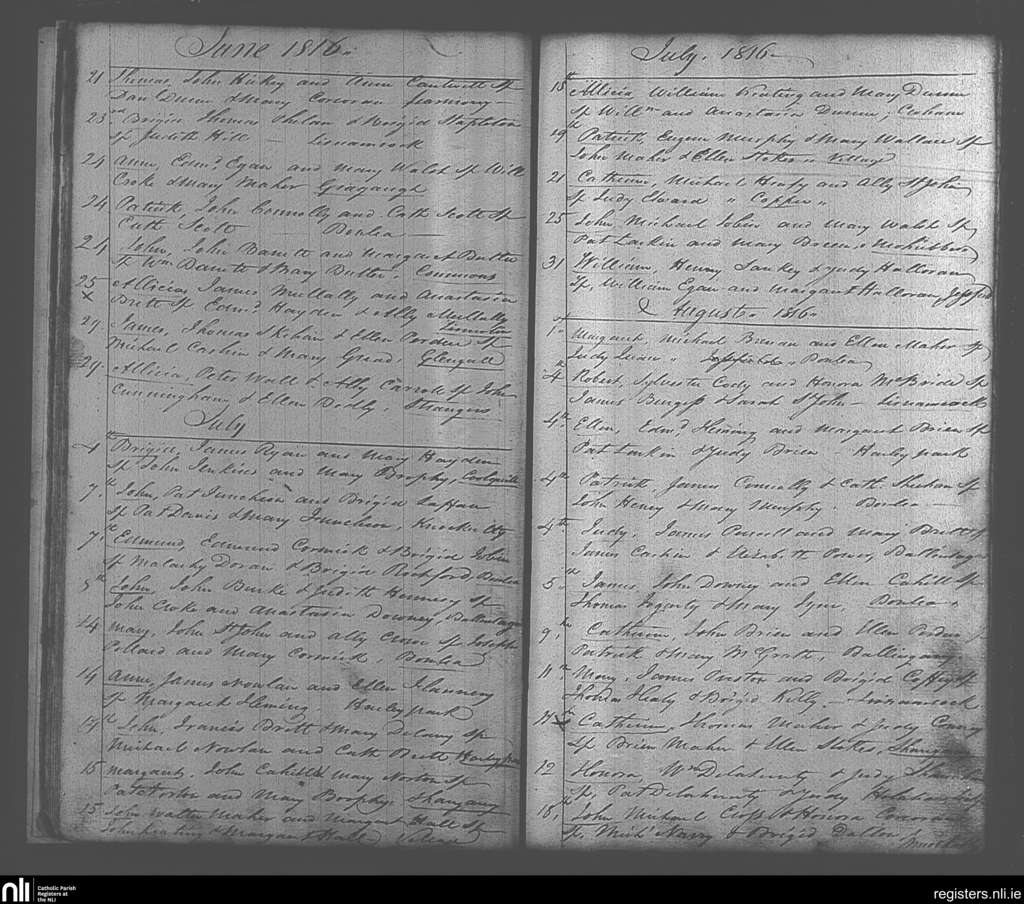 June 1816
21 Thomas, John Hickey and Ann Cantwell Sp
Dan Dunn & Mary Corcoran
23 Brigid Thomas Phelan & Brigid Stapleton
Sp Judith Hill — Lisnamrock
24 Ann, Edmd Egan and Mary Walsh Sp Willm
Croke & Mary Maher Gragaugh
24 Patrick, John Connolly and Cath Scott Sp
Cath Scott Boulea —
24 John, John Barrett and Margaret Butler
Sp Wm Barrett & Mary Butler, Commons
25 Allicia James Mullally and Anastasia
x Brett Sp Edmd Hayden & Ally Mullally
29 James, Thomas Skehan & Ellen Pordue Sp
Michael Cashin & Mary Glengall
29 Allicia, Peter Wall & Ally Carroll Sp John
Cunningham & Ellen Strangers
July
4th Brigid, James Ryan and Mary Hayden
Sp John Jenkins and Mary Brophy, Coolquill
7th John, Pat and Brigid Laffan
Sp Pat Davis & Mary
7th Edmund, Edmund Cormick & Brigid Tobin
Sp Malachy Doran & Brigid Rochford, Boulea
8th John, John Burke & Judith Hennesy Sp
John Croke and Anastasia Downey, Ballintaggart
14 Mary, John St John and Ally Sp Joseph
Pollard and Mary Cormick, Boulea
14 Ann, James Nowlan and Ellen Flannery
Sp Margaret Fleming Harleypark
14th John, Francis Brett & Mary Delany Sp
Michael Nowlan and Cath Brett Harleypark
15 Margaret, John Cahill & Mary Norton Sp
Pat Norton and Mary Brophy,
15 John Walter Maher and Margaret Hall Sp
John Keating & Margaret Hall,
July, 1816
18th Allicia William Keating and Mary Dunn
Sp Willm and Anastasia Dunn,
19th Patrick, Eugene Murphy & Mary Wallace Sp
John Maher & Ellen Stokes " Village
21 Catherine, Michael and Ally St John
Sp Judy Elward " Copper "
25 John, Michael Tobin and Mary Walsh Sp
Pat Larkin and Mary Breen
31 William, Henry Sankey & Judy Halloran
Sp, William Egan and Margaret Halloran,
August 1816
1st Margaret, Michael Brenan and Ellen Maher Sp
Judy Boulea
4th Robert, Sylvester Cody and Honora McBride Sp
James Burgess & Sarah St John — Lisnamrock
4th Ellen, Edmd Fleming and Margaret Brien Sp
Pat Larkin & Judy Brien Harleypark
4th Patrick, James Connolly & Cath Skehan Sp
John Henry & Mary Murphy. Boulea —
4th Judy, James Purcell and Mary Brett Sp
James Cashin & Elizabeth Power, Ballintaggart
5th James, John Downey and Ellen Cahill Sp
Thomas Fogarty & Mary Boulea
9th Catherine, John Brien and Ellen Pordue Sp
Patrick & Mary McGrath, Ballingarry
11th Mary, James Preston and Brigid Sp
Thomas Healy & Brigid Kelly — Lisnamrock
11th x Catherine, Thomas Maher & Judy
Sp Brien Maher & Ellen Stokes,
12 Honora, Wm Delahunty & Judy
Sp Pat Delahunty & Judy
18th John Michael Cross & Honora Corcoran
Sp, Michl & Brigid Dalton
nli
Catholic Parish
Registers at
the NLI
registers.nli.ie